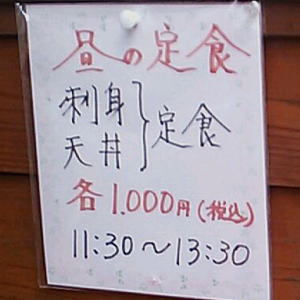 昼の定食
刺身
天丼
}定食
各1.000円(税込)
11:30～13:30